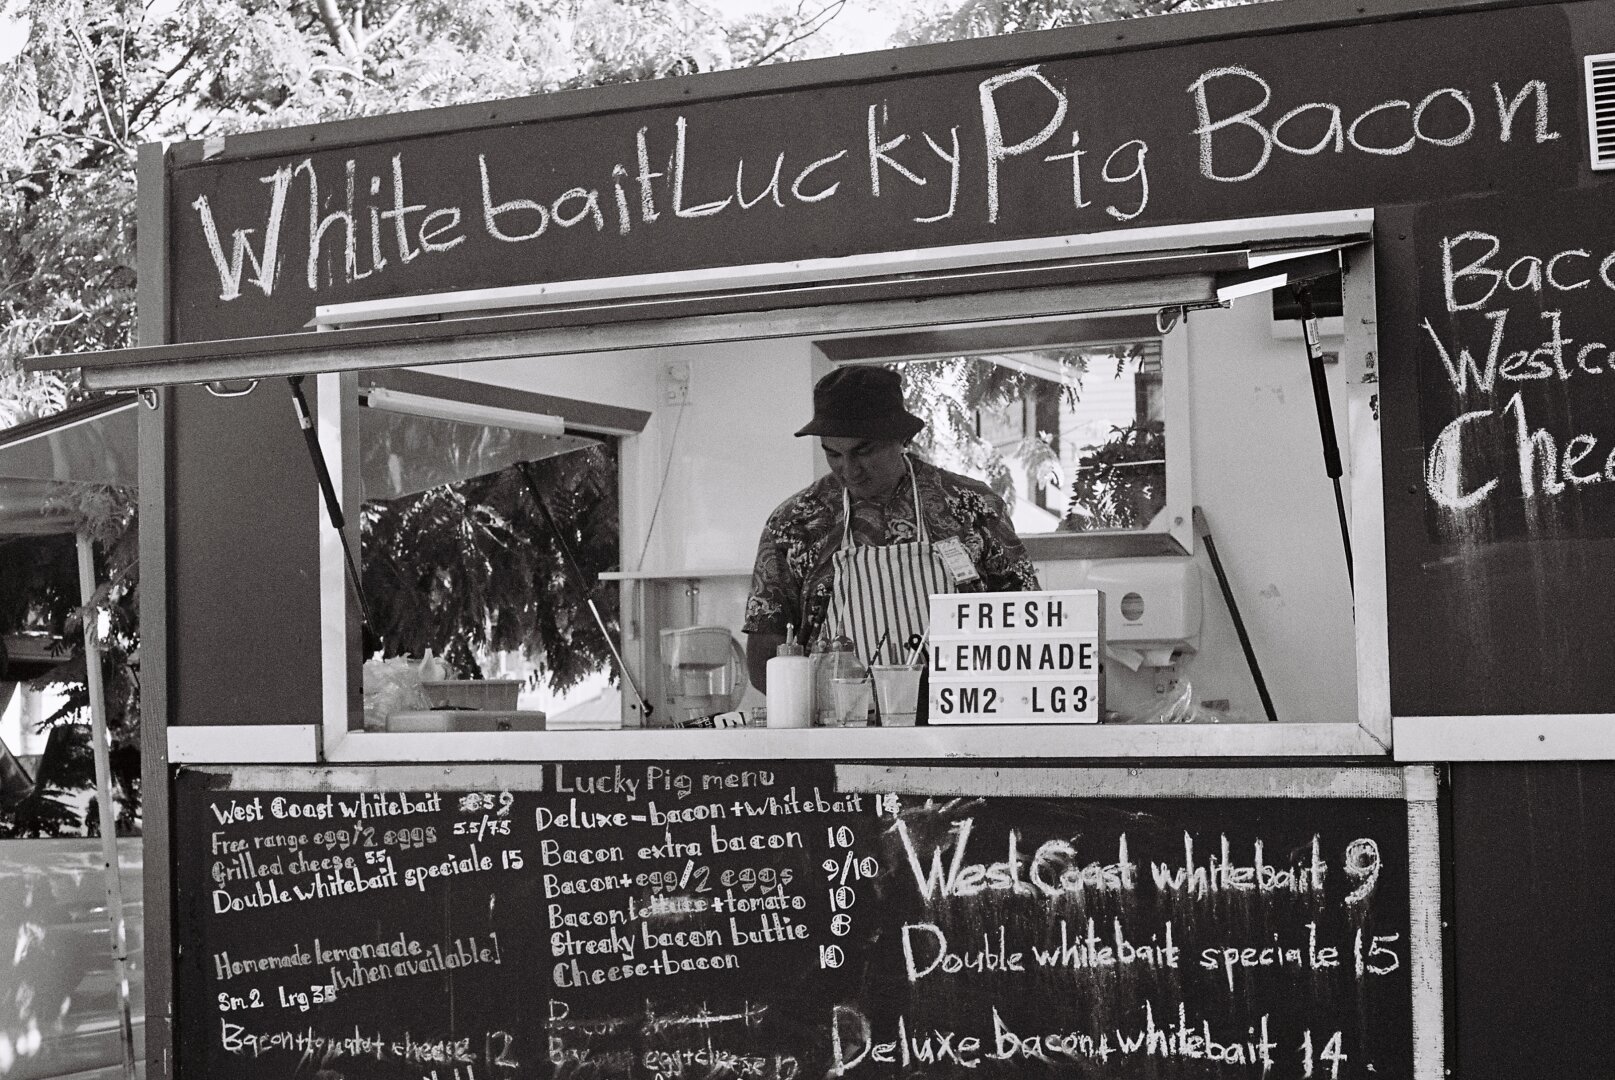 Whitebait Lucky Pig Bacon
Bac
Westc
Che
FRESH
LEMONADE
SM2 LG3
Lucky Pig menu
West Coast whitebait 9
Free range egg/2 eggs 5.5/7.5
Grilled cheese 5.5
Double whitebait speciale 15
Homemade lemonade
[when available]
Sm2 Lrg
Bacon+tomato+cheese 12
Deluxe-bacon+whitebait 14
Bacon extra bacon 10
Bacon+egg/2 eggs 9/10
Bacon lettuce+tomato 10
Streaky bacon buttie 8
Cheese+bacon 10
egg+cheese 12
West Coast whitebait 9
Double whitebait speciale 15
Deluxe bacon+whitebait 14